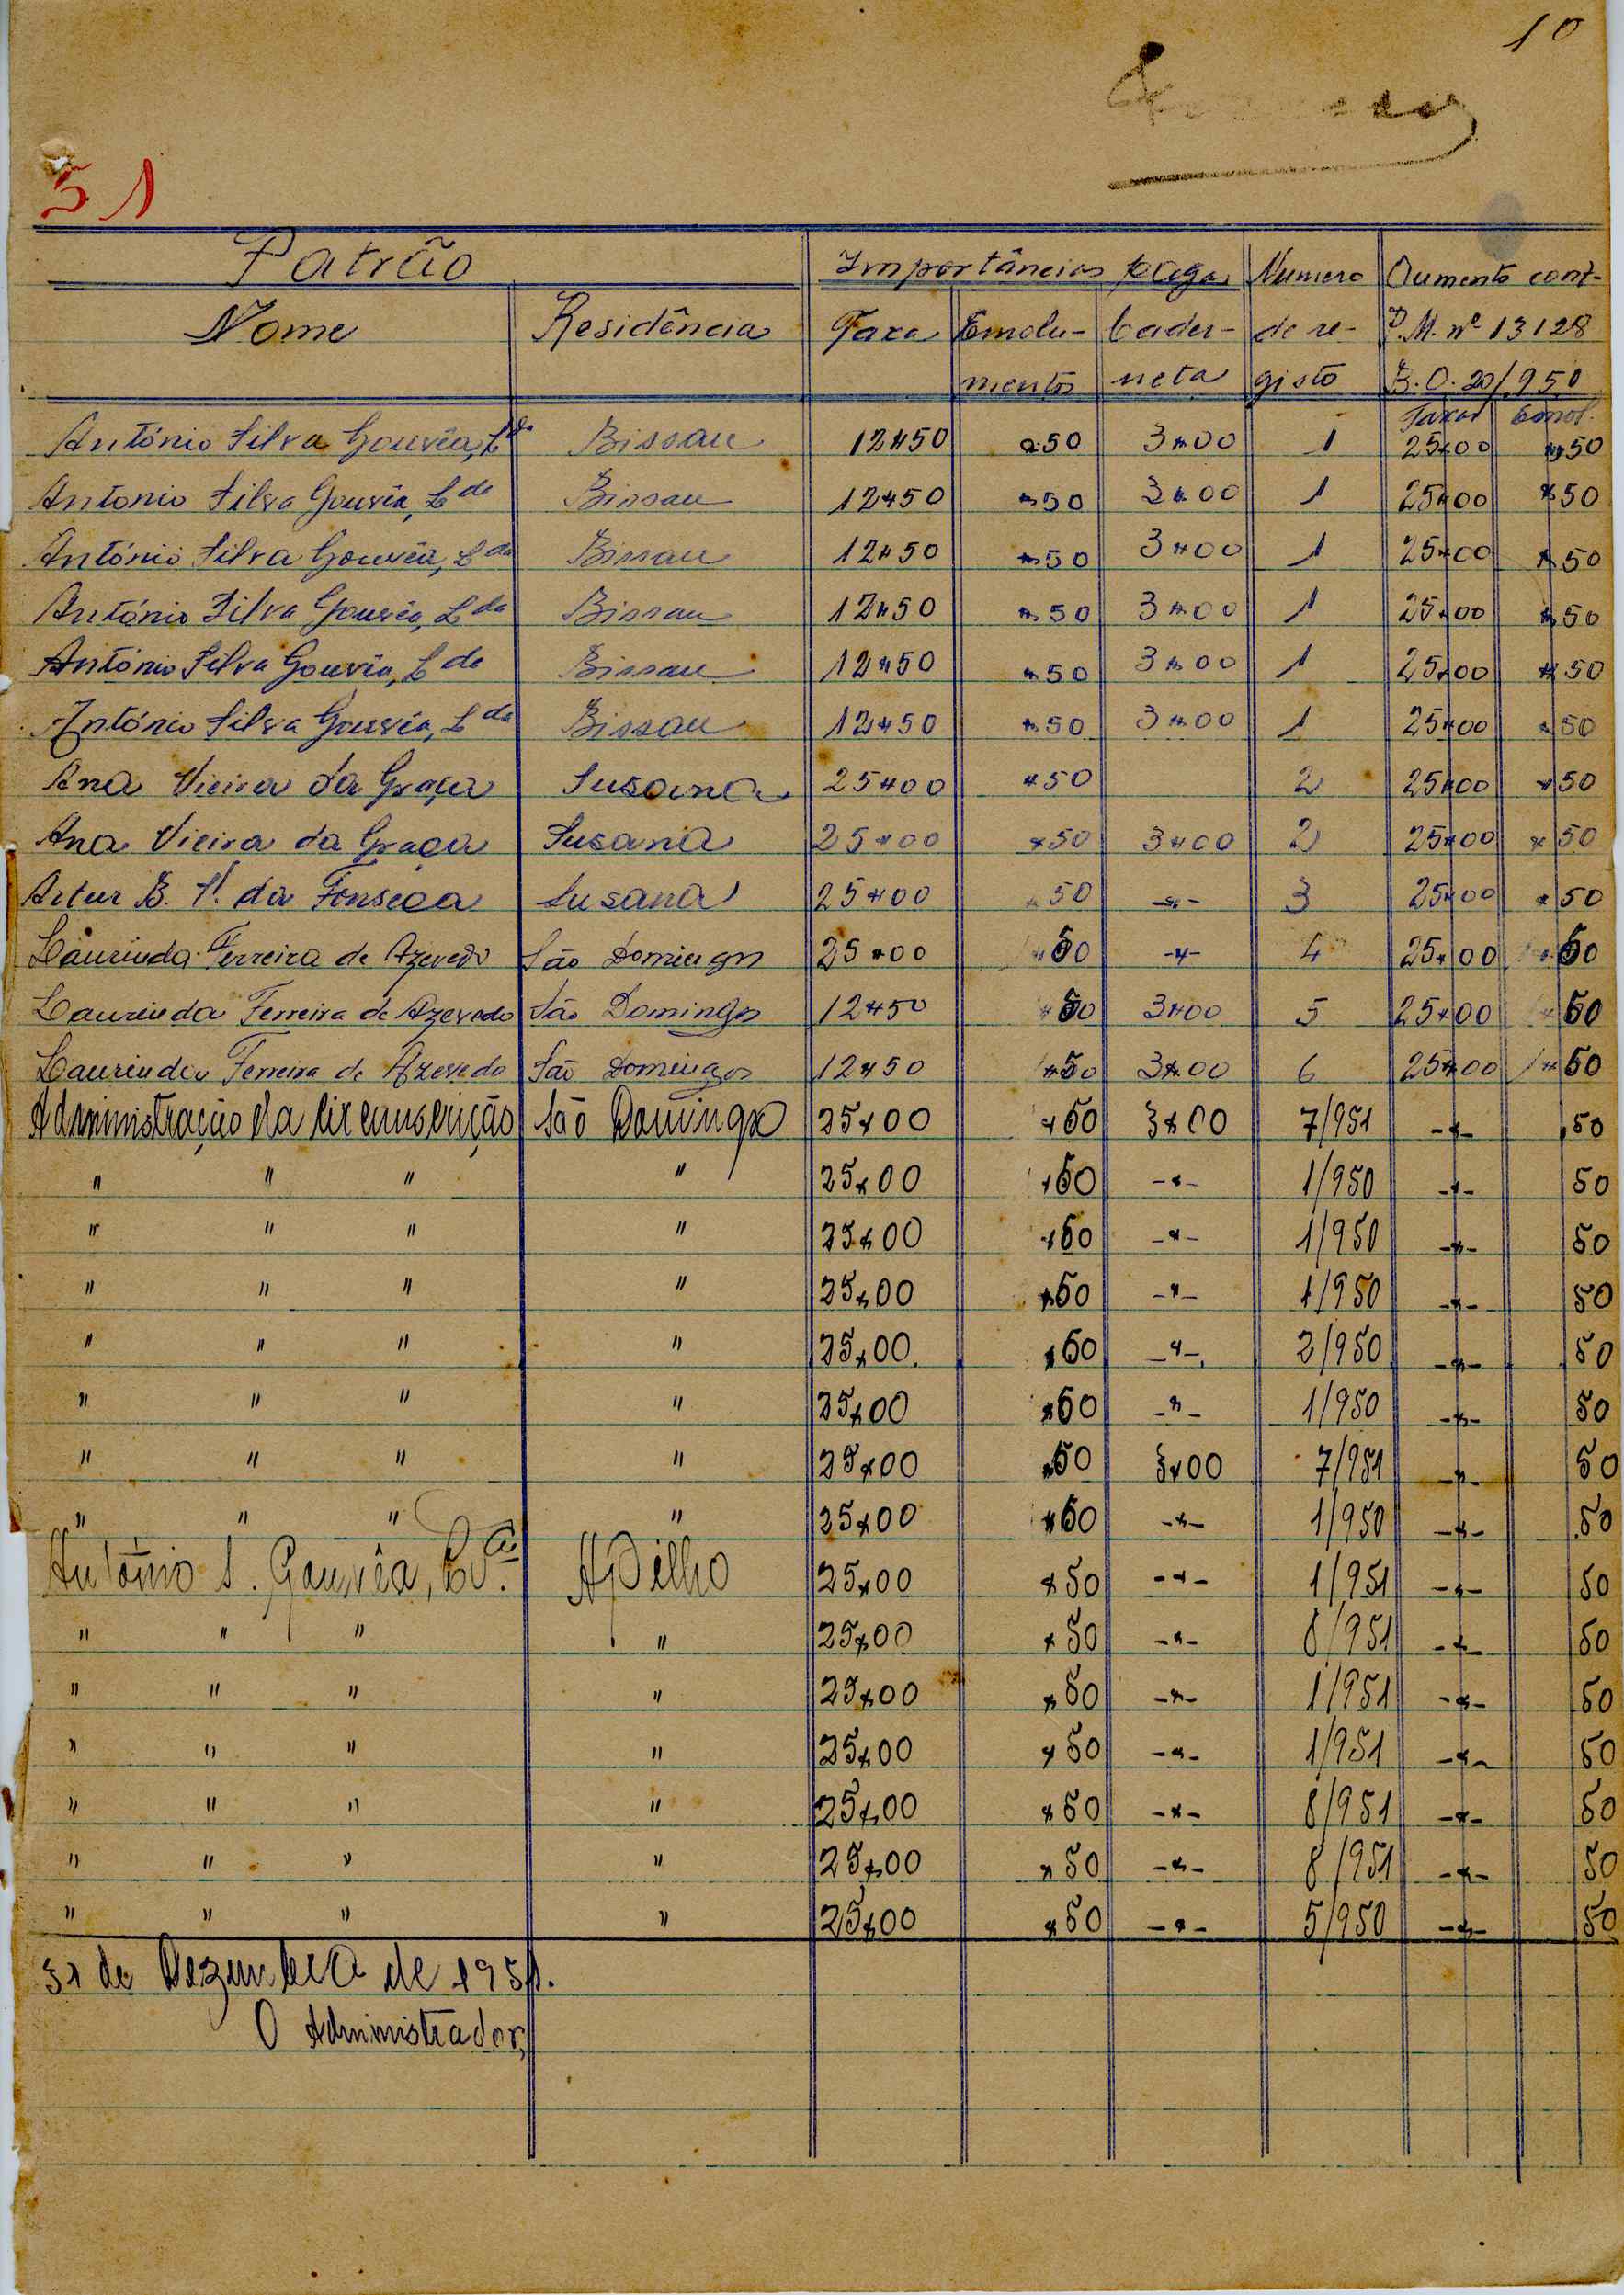 10
51
Patrão Importâncias pagas Numero Aumento conf.
Nome Residência Taxa Emolu- Cader- de re- P.M. nº 13128
mentos neta gisto B.O. 20/950
Taxas Emol.
António Silva Gouvêa, Lda Bissau 12$50 $50 3$00 1 25$00 $50
Antonio Silva Gouvêa, Lda Bissau 12$50 $50 3$00 1 25$00 $50
António Silva Gouvêa, Lda Bissau 12$50 $50 3$00 1 25$00 $50
António Silva Gouvêa, Lda Bissau 12$50 $50 3$00 1 25$00 $50
António Silva Gouvêa, Lda Bissau 12$50 $50 3$00 1 25$00 $50
António Silva Gouvêa, Lda Bissau 12$50 $50 3$00 1 25$00 $50
Ana Vieira da Graça Susana 25$00 $50 2 25$00 $50
Ana Vieira da Graça Susana 25$00 $50 3$00 2 25$00 $50
Artur B. da Fonseca Susana 25$00 $50 -$- 3 25$00 $50
Laurinda Ferreira de Azevedo São Domingos 25$00 $50 -$- 4 25$00 $50
Laurinda Ferreira de Azevedo São Domingos 12$50 $50 3$00 5 25$00 $50
Laurinda Ferreira de Azevedo São Domingos 12$50 $50 3$00 6 25$00 $50
Administração da Circunscrição São Domingos 25$00 $50 3$00 7/951 -$- $50
" " " " 25$00 $50 -$- 1/950 -$- 50
" " " " 25$00 $50 -$- 1/950 -$- 50
" " " " 25$00 $50 -$- 1/950 -$- 50
" " " " 25$00 $50 -$- 2/950 -$- 50
" " " " 25$00 $50 -$- 1/950 -$- 50
" " " " 25$00 $50 3$00 7/951 -$- 50
" " " " 25$00 $50 -$- 1/950 -$- 50
António S. Gouvêa, Ld.ª 25$00 $50 -$- 1/951 -$- 50
" " " " 25$00 $50 -$- 8/951 -$- 50
" " " " 25$00 $50 -$- 1/951 -$- 50
" " " " 25$00 $50 -$- 1/951 -$- 50
" " " " 25$00 $50 -$- 8/951 -$- 50
" " " " 25$00 $50 -$- 8/951 -$- 50
" " " " 25$00 $50 -$- 5/950 -$- 50
31 de Dezembro de 1951.
O Administrador,